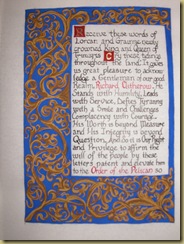 Receive these words of
Lorcan and
crowned King and Queen of
Cry these tidings
throughout the land. It gives
us great pleasure to acknow
ledge a Gentleman of our good
Realm. Richard He
Stands with Humility, Leads
with Service, Defies Tyranny
with a Smile and Challenges
Complacency with Courage.
His Worth is beyond Measure
and His Integrity is beyond
Question, And so it is Our Right
and Privilege to affirm the
will of the people by these
letters patent and elevate him
to the Order of the Pelican so